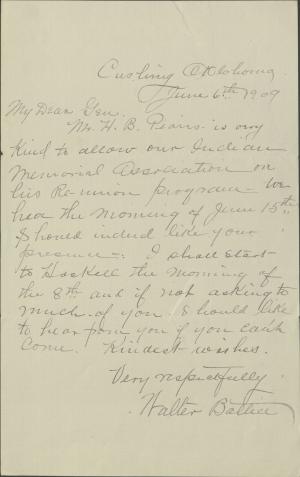 Cushing Oklahoma
June 6th 1909
My Dear Gen.
Mr. H. B. Peairs is very
Kind to allow our Indian
Memorial Association on
his Re-union program - We
hea the morning of June 15th
I should indeed like your
presence. I shall start
to Haskell the morning of
the 8th and if not asking to
much of you I should like
to hear from you if you cant
come. Kindest wishes.
Very respectfully
Walter Battice